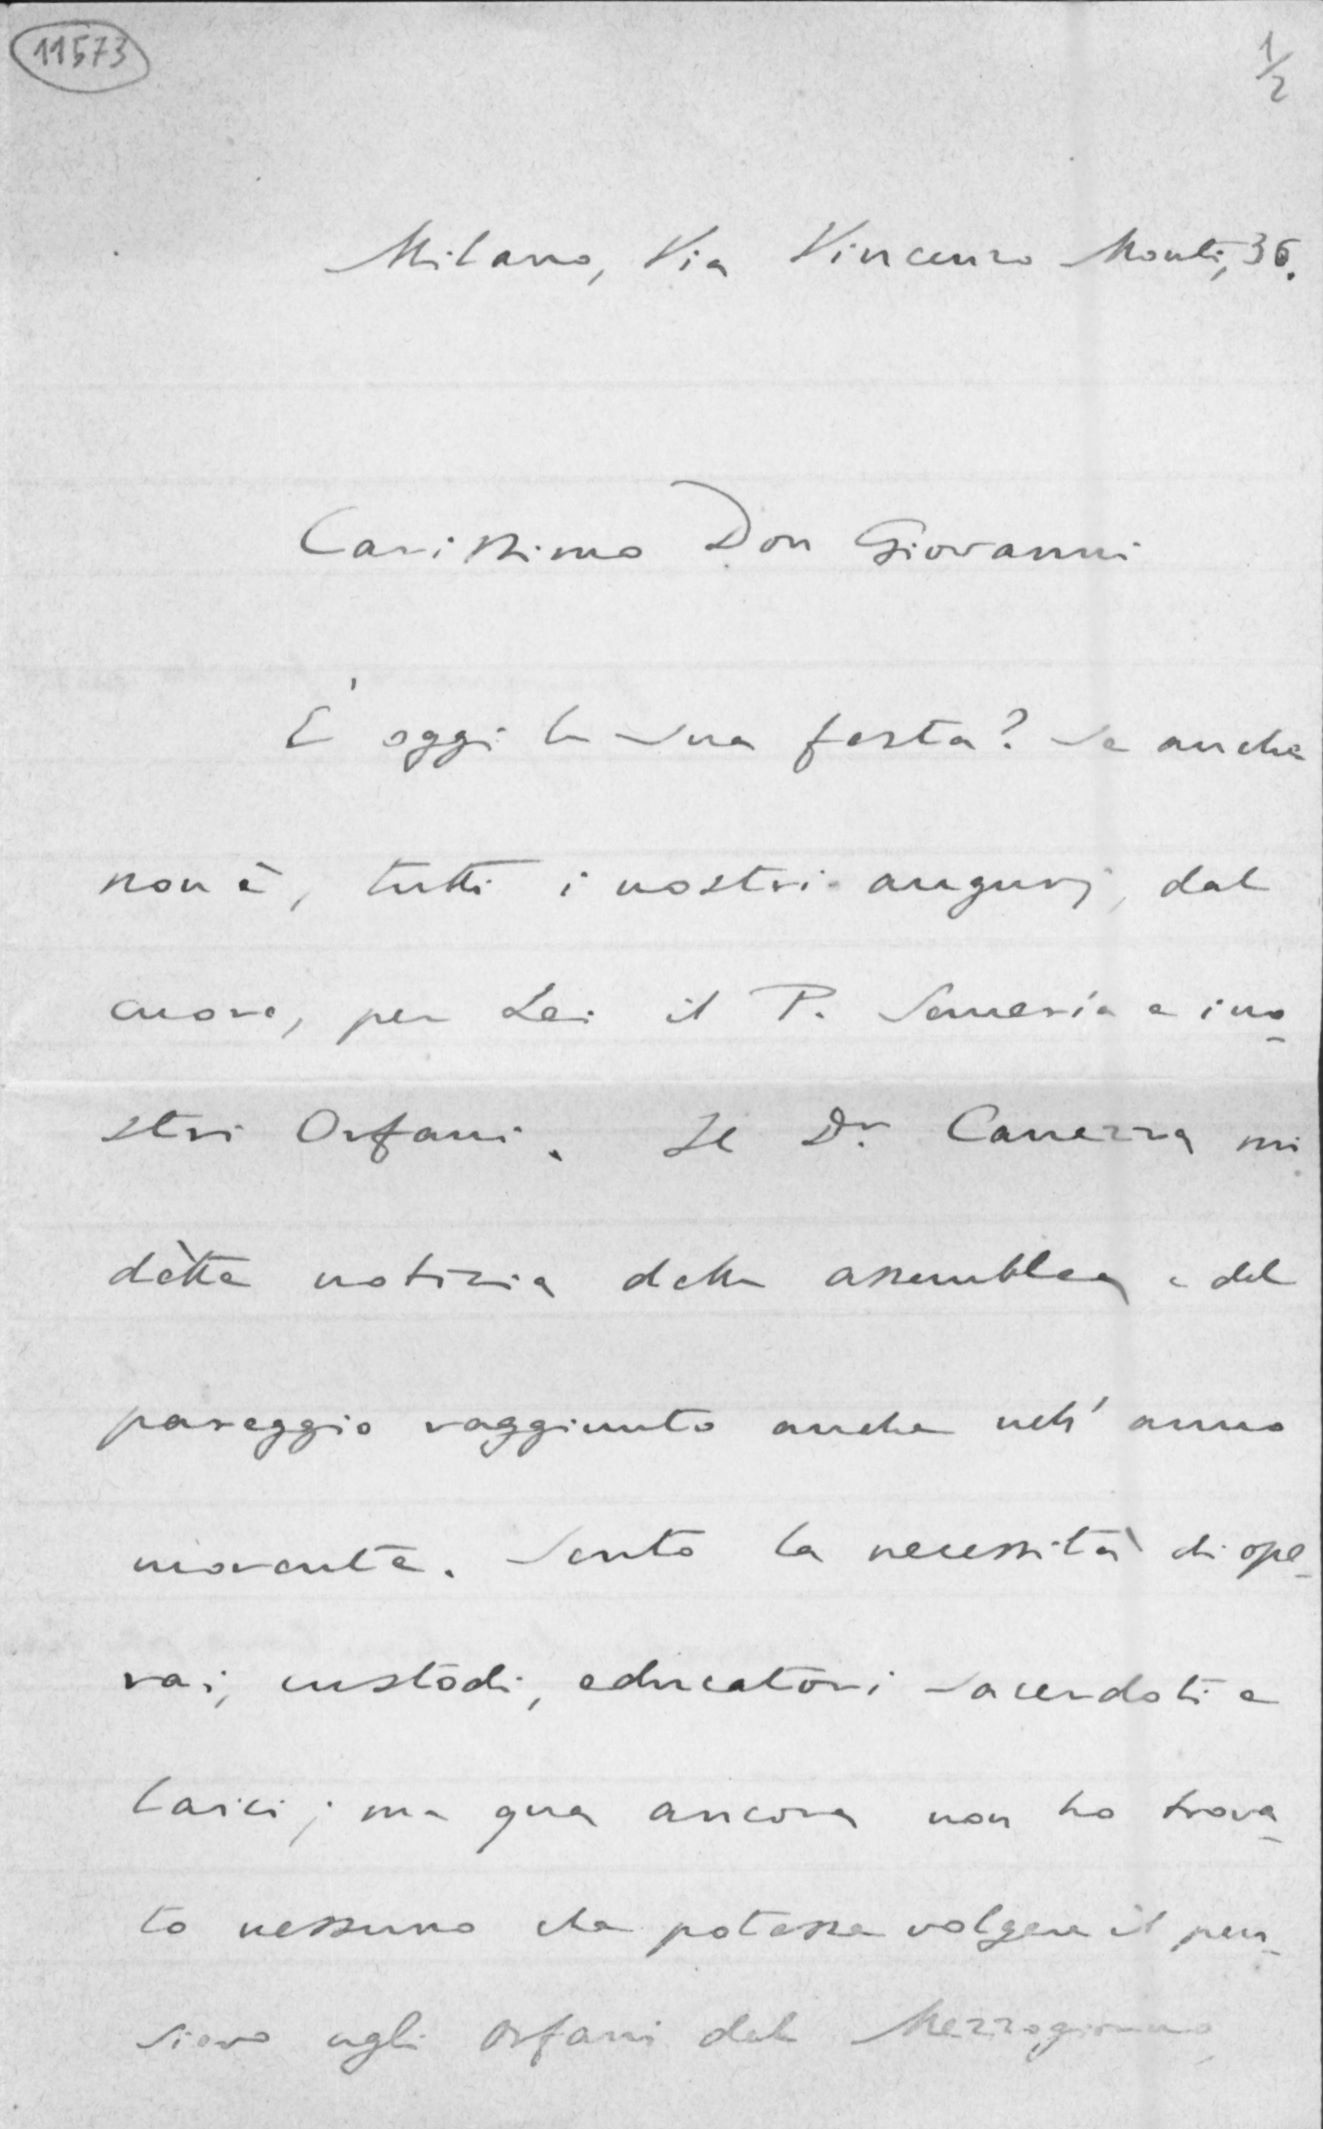 11573
1/2
Milano, Via Vincenzo Monti, 36.
Carissimo Don Giovanni
È oggi la sua festa? Se anche
non è, tutti i nostri augurj, dal
cuore, per Lei il P. Semeria e i no-
stri Orfani. Il Dr. Canezza mi
dètte notizia della assemblea e del
pareggio raggiunto anche nell' anno
morente. Sento la necessità di ope-
rai, custodi, educatori sacerdoti e
laici; ma qua ancora non ho trova-
to nessuno che potesse volgere il pen-
siero agli Orfani del Mezzogiorno